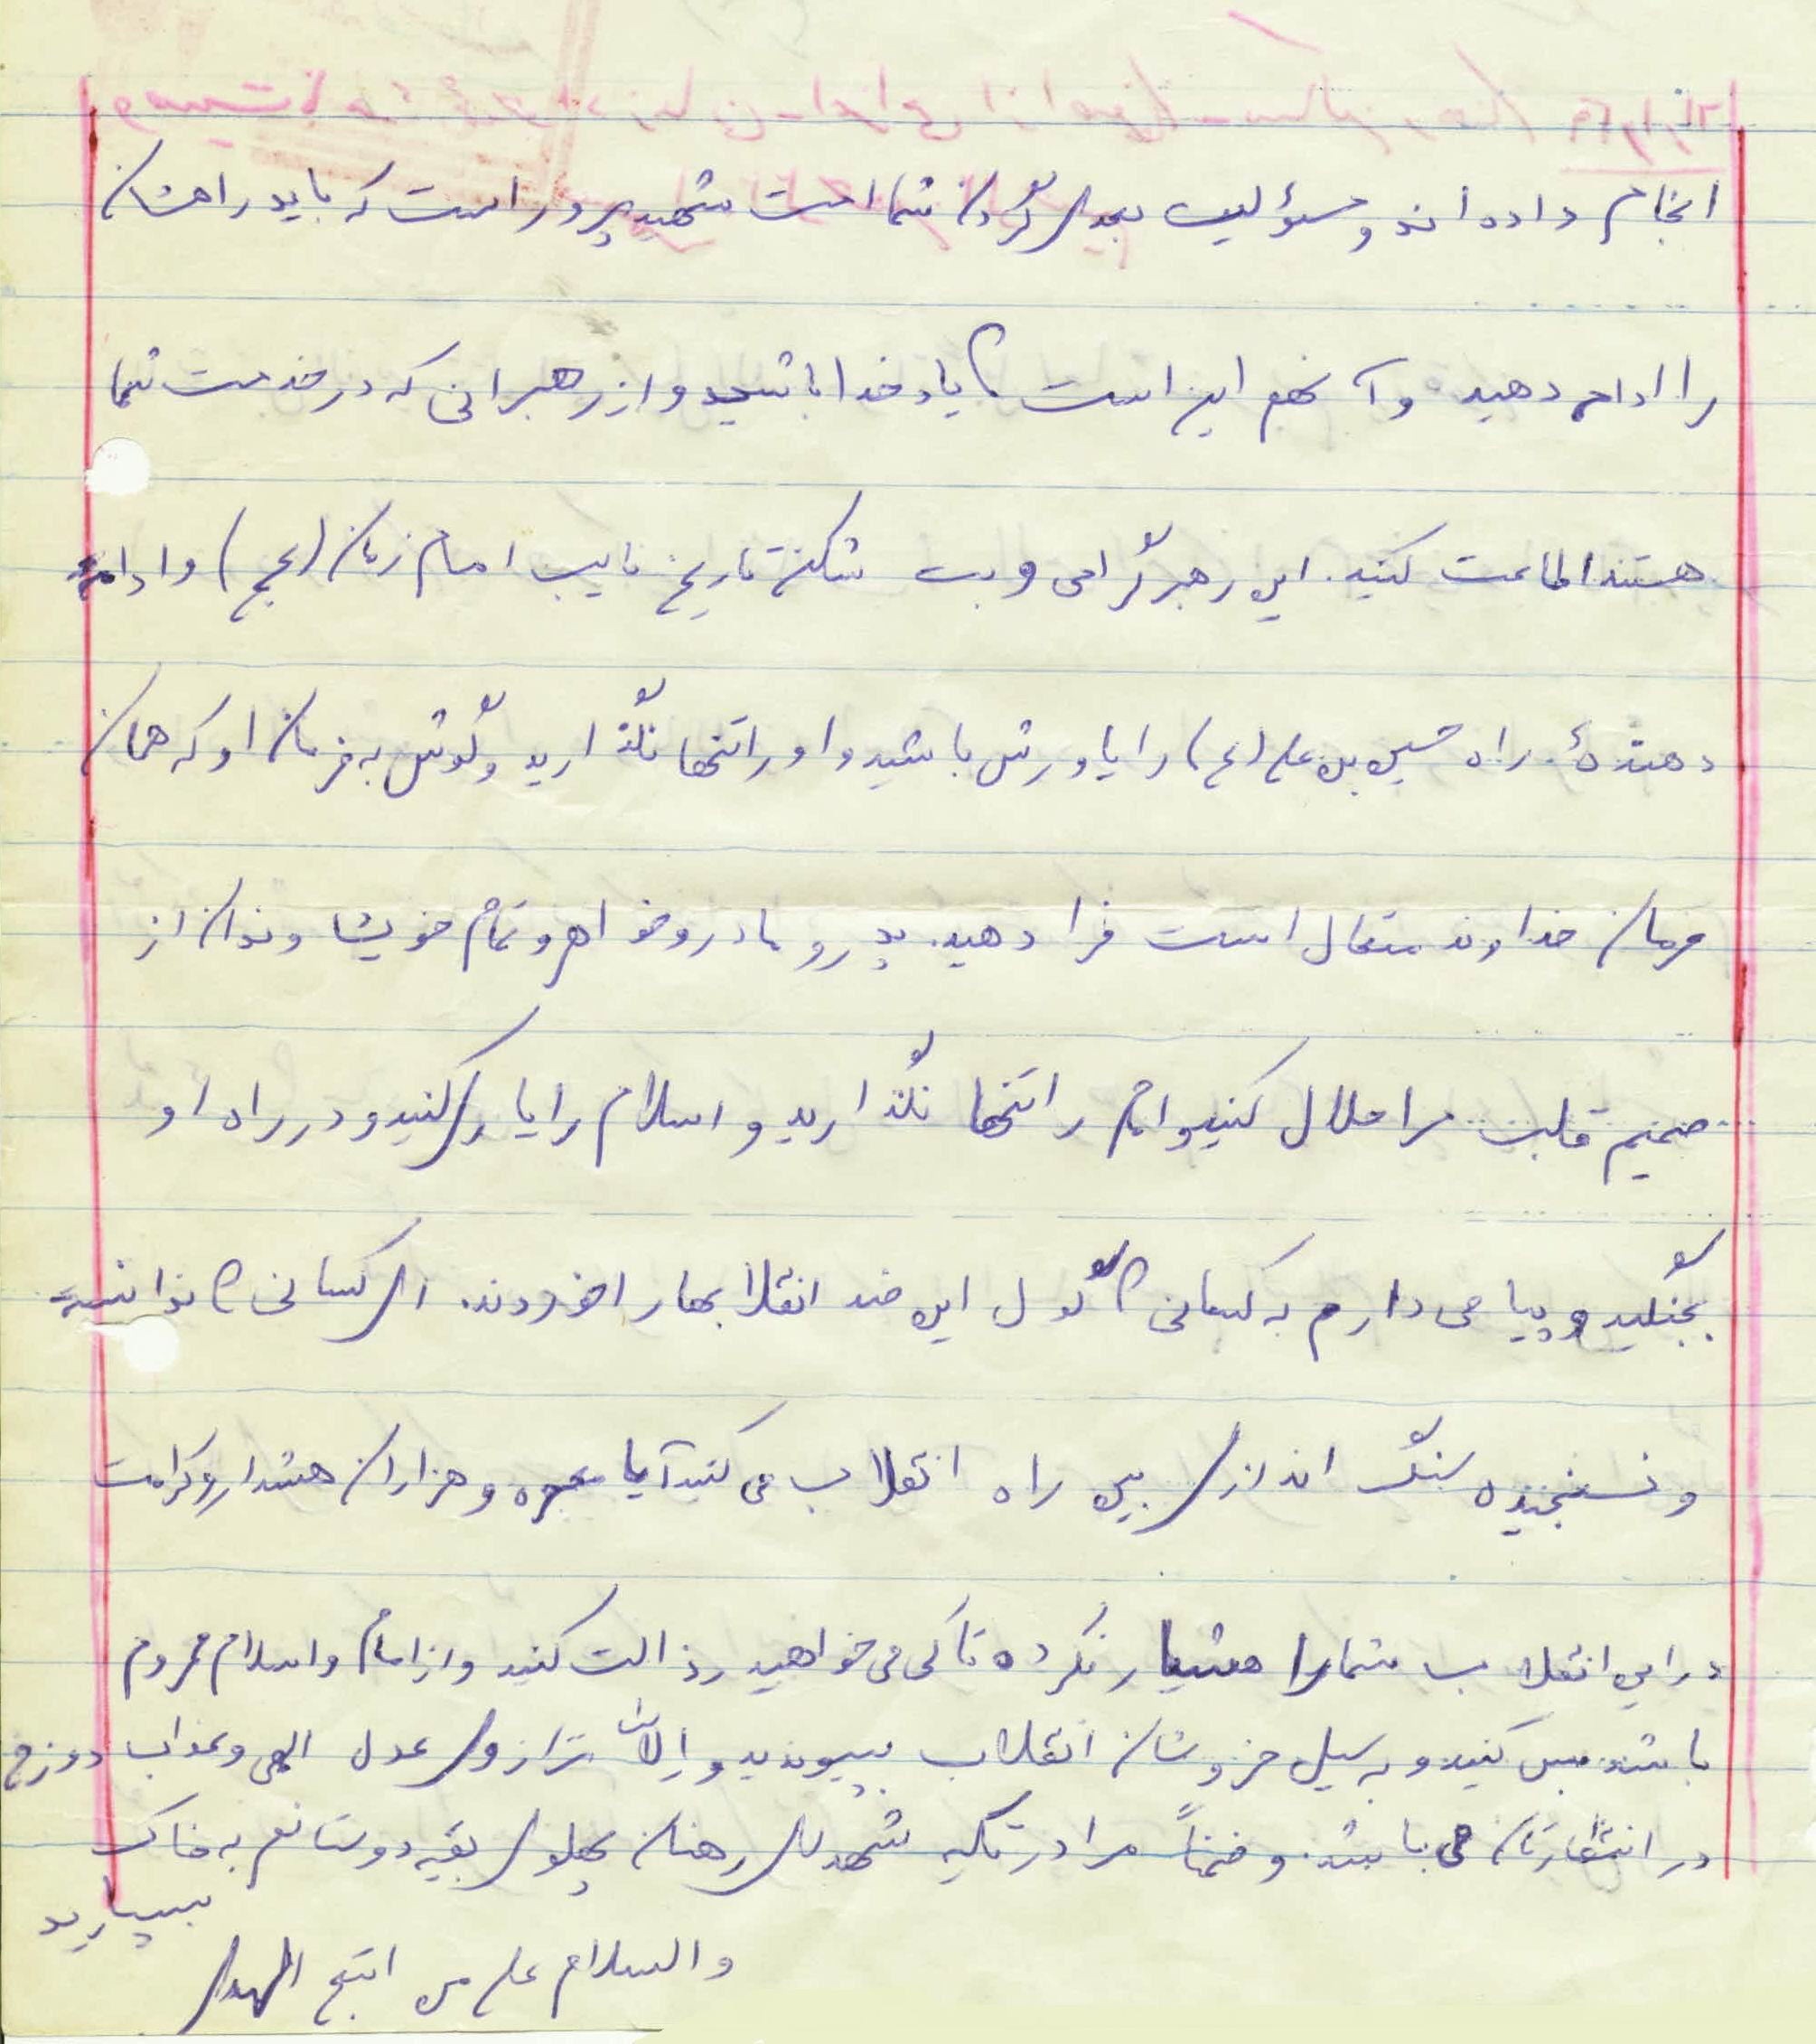 انجام داده اند و مسؤلیت بعدی گردن شما امت شهید پرور است که باید راهشان
را ادامه دهید و آنهم این است که یاد خدا باشید و از رهبرانی که در خدمت شما
هستند اطاعت کنید. این رهبر گرامی و بت شکن تاریخ نایب امام زمان (عج) و ادامه
دهندهٔ راه حسین بن علی (ع) را یاورش باشید و او را تنها نگذارید و گوش به فرمان او که همان
فرمان خداوند متعال است فرا دهید. پدر و مادر و خواهر و تمام خویشاوندان از
صمیم قلب مرا حلال کنید و امام را تنها نگذارید و اسلام را یاری کنید و در راه او
بجنگید و پیامی دارم به کسانی که گول این ضد انقلابها را خوردند. ای کسانی که ندانسته
و نسنجیده سنگ اندازی بین راه انقلاب می کنید آیا معجزه و هزاران هشدار و کرامت
در این انقلاب شما را هشیار نکرده تا کی می خواهید رذالت کنید و از امام و اسلام محروم
باشید بس کنید و به سیل خروشان انقلاب بپیوندید و الا ترازوی عدل الهی و عذاب دوزخ
در انتظارتان می باشد. و ضمناً مرا در تکیه شهدای رهنان پهلوی بقیه دوستانم به خاک
بسپارید
والسلام علی من اتبع الهدی